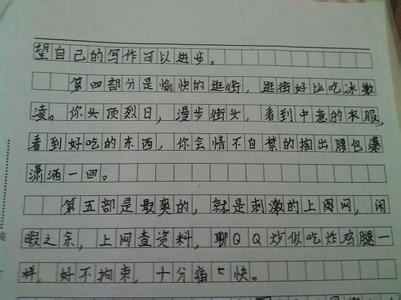 望自己的写作可以进步。
第四部分是愉快的逛街，逛街好比吃冰激
凌。你头顶烈日，漫步街头，看到中意的衣服，
看到好吃的东西，你会情不自禁的掏出腰包
潇洒一回。
第五部是最爽的，就是刺激的上网，闲
暇之余，上网查资料，聊QQ炒似吃炸鸡腿一
样，好不拘束，十分痛快。